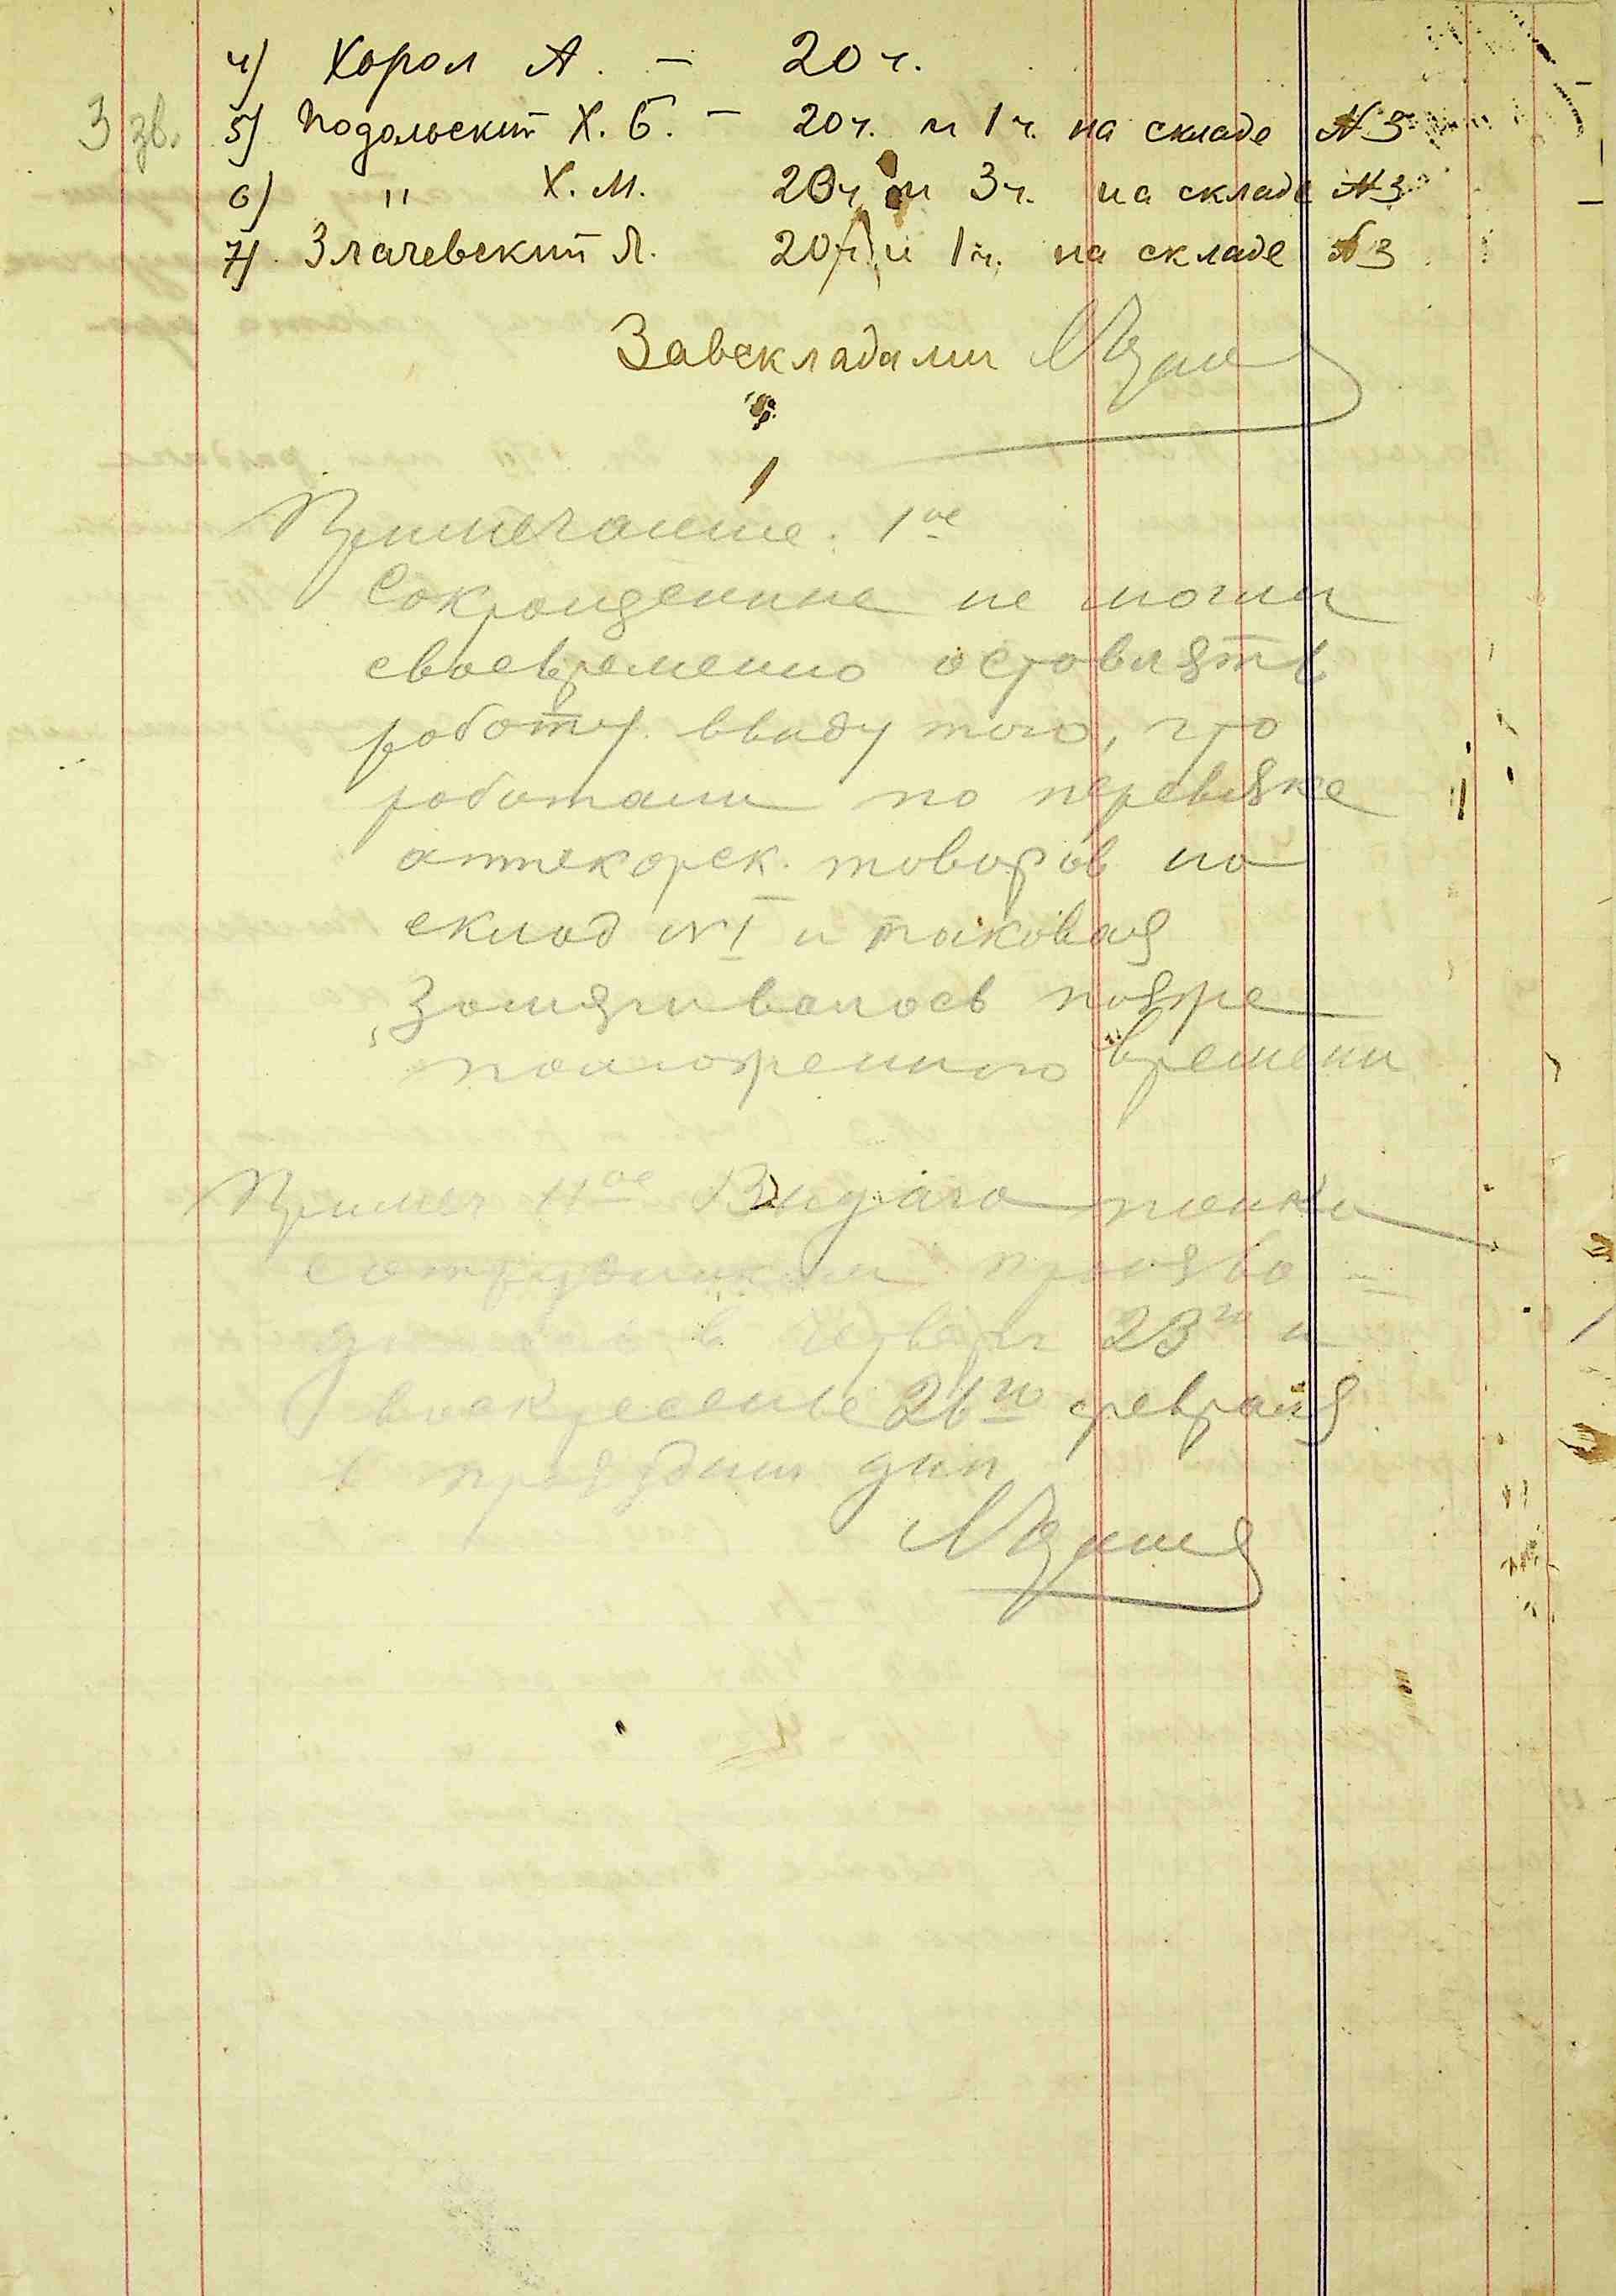 4) Хорол А. – 20 ч.
3 зв. 5) Подольский Х. Б. – 20 ч. и 1 ч. на складе № 3
6) " Х. М. 20 ч и 3 ч. на складе № 3
7) Злачевский Л. 20 ч и 1 ч. на складе № 3
Завскладами
Примечание. 1ое
Сокращенные не могли
своевременно оставлять
работу ввиду того, что
работали по перевязке
аптекарск. товаров на
склад № I и таковая
затягивалось позже
положенного времени
Примеч 11ое Выдача пайка
сотрудникам произво-
дилась в четверг 23го и
воскресенье 26го февраля
в праздник дни